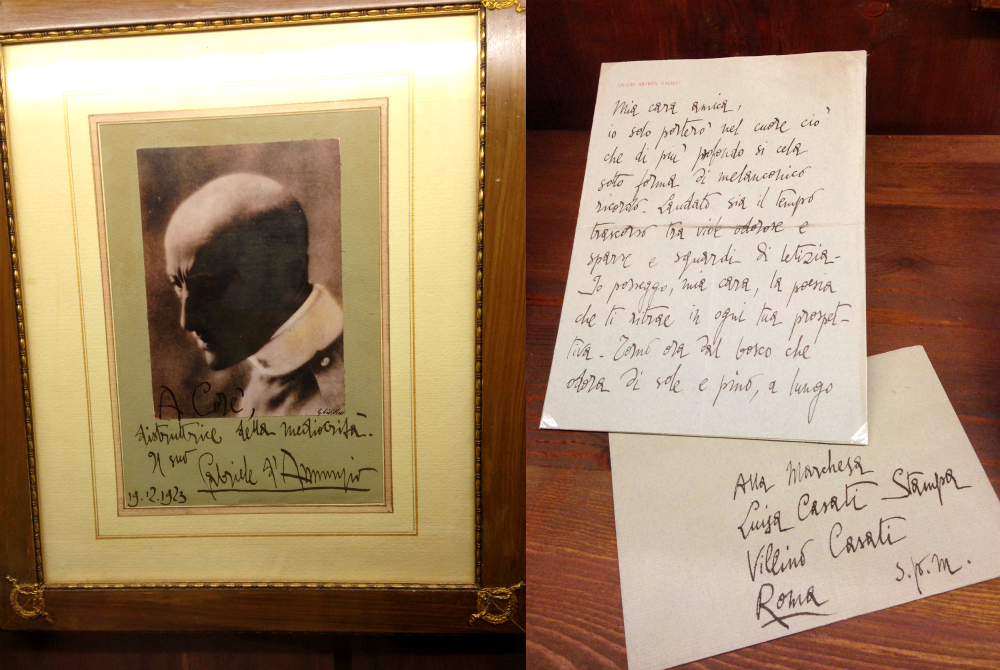 A Corè,
distruttrice della mediocrità.
Il suo
Gabriele d'Annunzio
19.12.1923
Mia cara amica,
io solo porterò nel cuore ciò
che di più profondo si cela
sotto forma di melanconico
ricordo. Laudato sia il tempo
trascorso tra viole odorose e
sparse e sguardi di letizia-
Io posseggo, mia cara, la poesia
che ti ritrae in ogni tua prospet-
tiva. Torno ora dal bosco che
odora di sole e pino, a lungo
Alla Marchesa
Luisa Casati Stampa
Villino Casati
Roma
s.p.m.